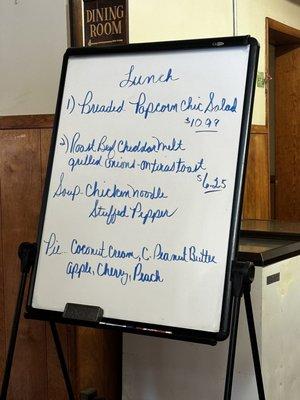 DINING
ROOM
Lunch
1) Breaded Popcorn Chic Salad
$10.99
2) Roast Beef Cheddar Melt
grilled onions on texas toast
$6.25
Soup - Chicken Noodle
Stuffed Pepper
Pie - Coconut Cream, C. Peanut Butter
apple, Cherry, Peach